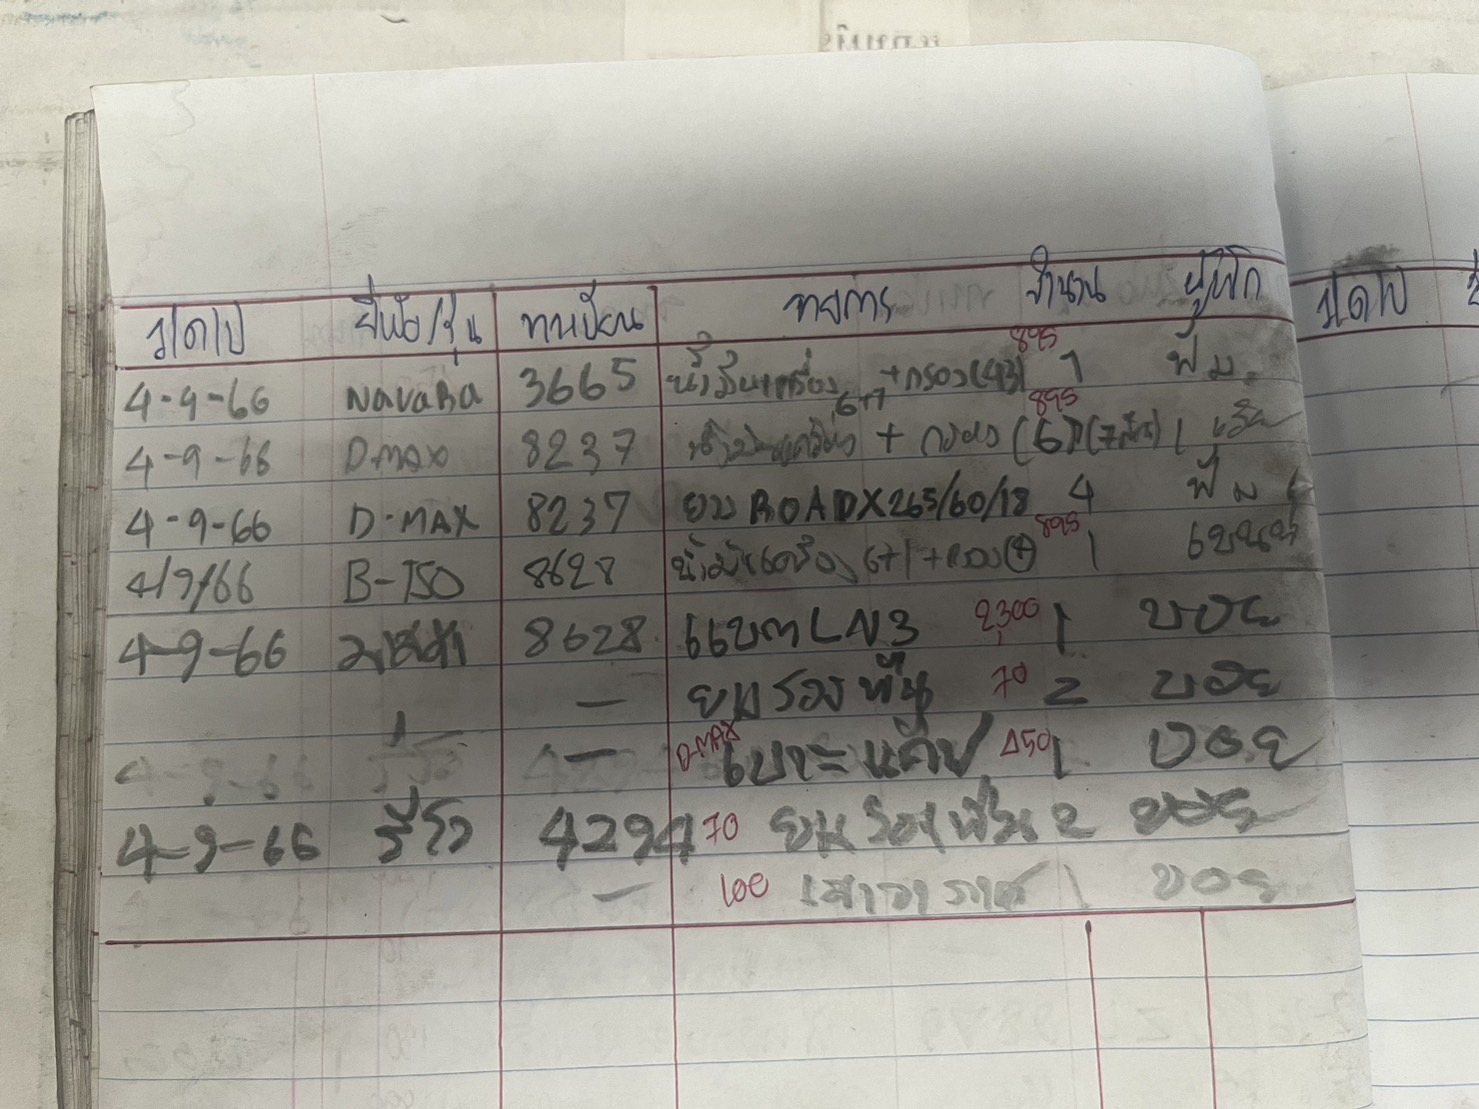 ว/ด/ป ยี่ห้อ/รุ่น ทะเบียน รายการ จำนวน ผู้เบิก
4-9-66 NAVARA 3665 น้ำมันเครื่อง 6+1 +กรอง(43) 895 1 ฟิ่ม
4-9-66 D-MAX 8237 น้ำมันเครื่อง + กรอง (6) 895 1
4-9-66 D-MAX 8237 ยาง ROADX 265/60/18 4 ฟิ่ม
4/9/66 B-T50 8628 น้ำมันเครื่อง 6+1 +กรอง 4 895 1
4-9-66 มาสด้า 8628 แบต LN3 2,300 1 บอย
— ยางรองพื้น 70 2 บอย
— D-MAX เบาะแค็ป 450 1 บอย
4-9-66 รีโว่ 4294 70 ยางรองพื้น 2 บอย
— 100 เสาอากาศ 1 บอย
ว/ด/ป